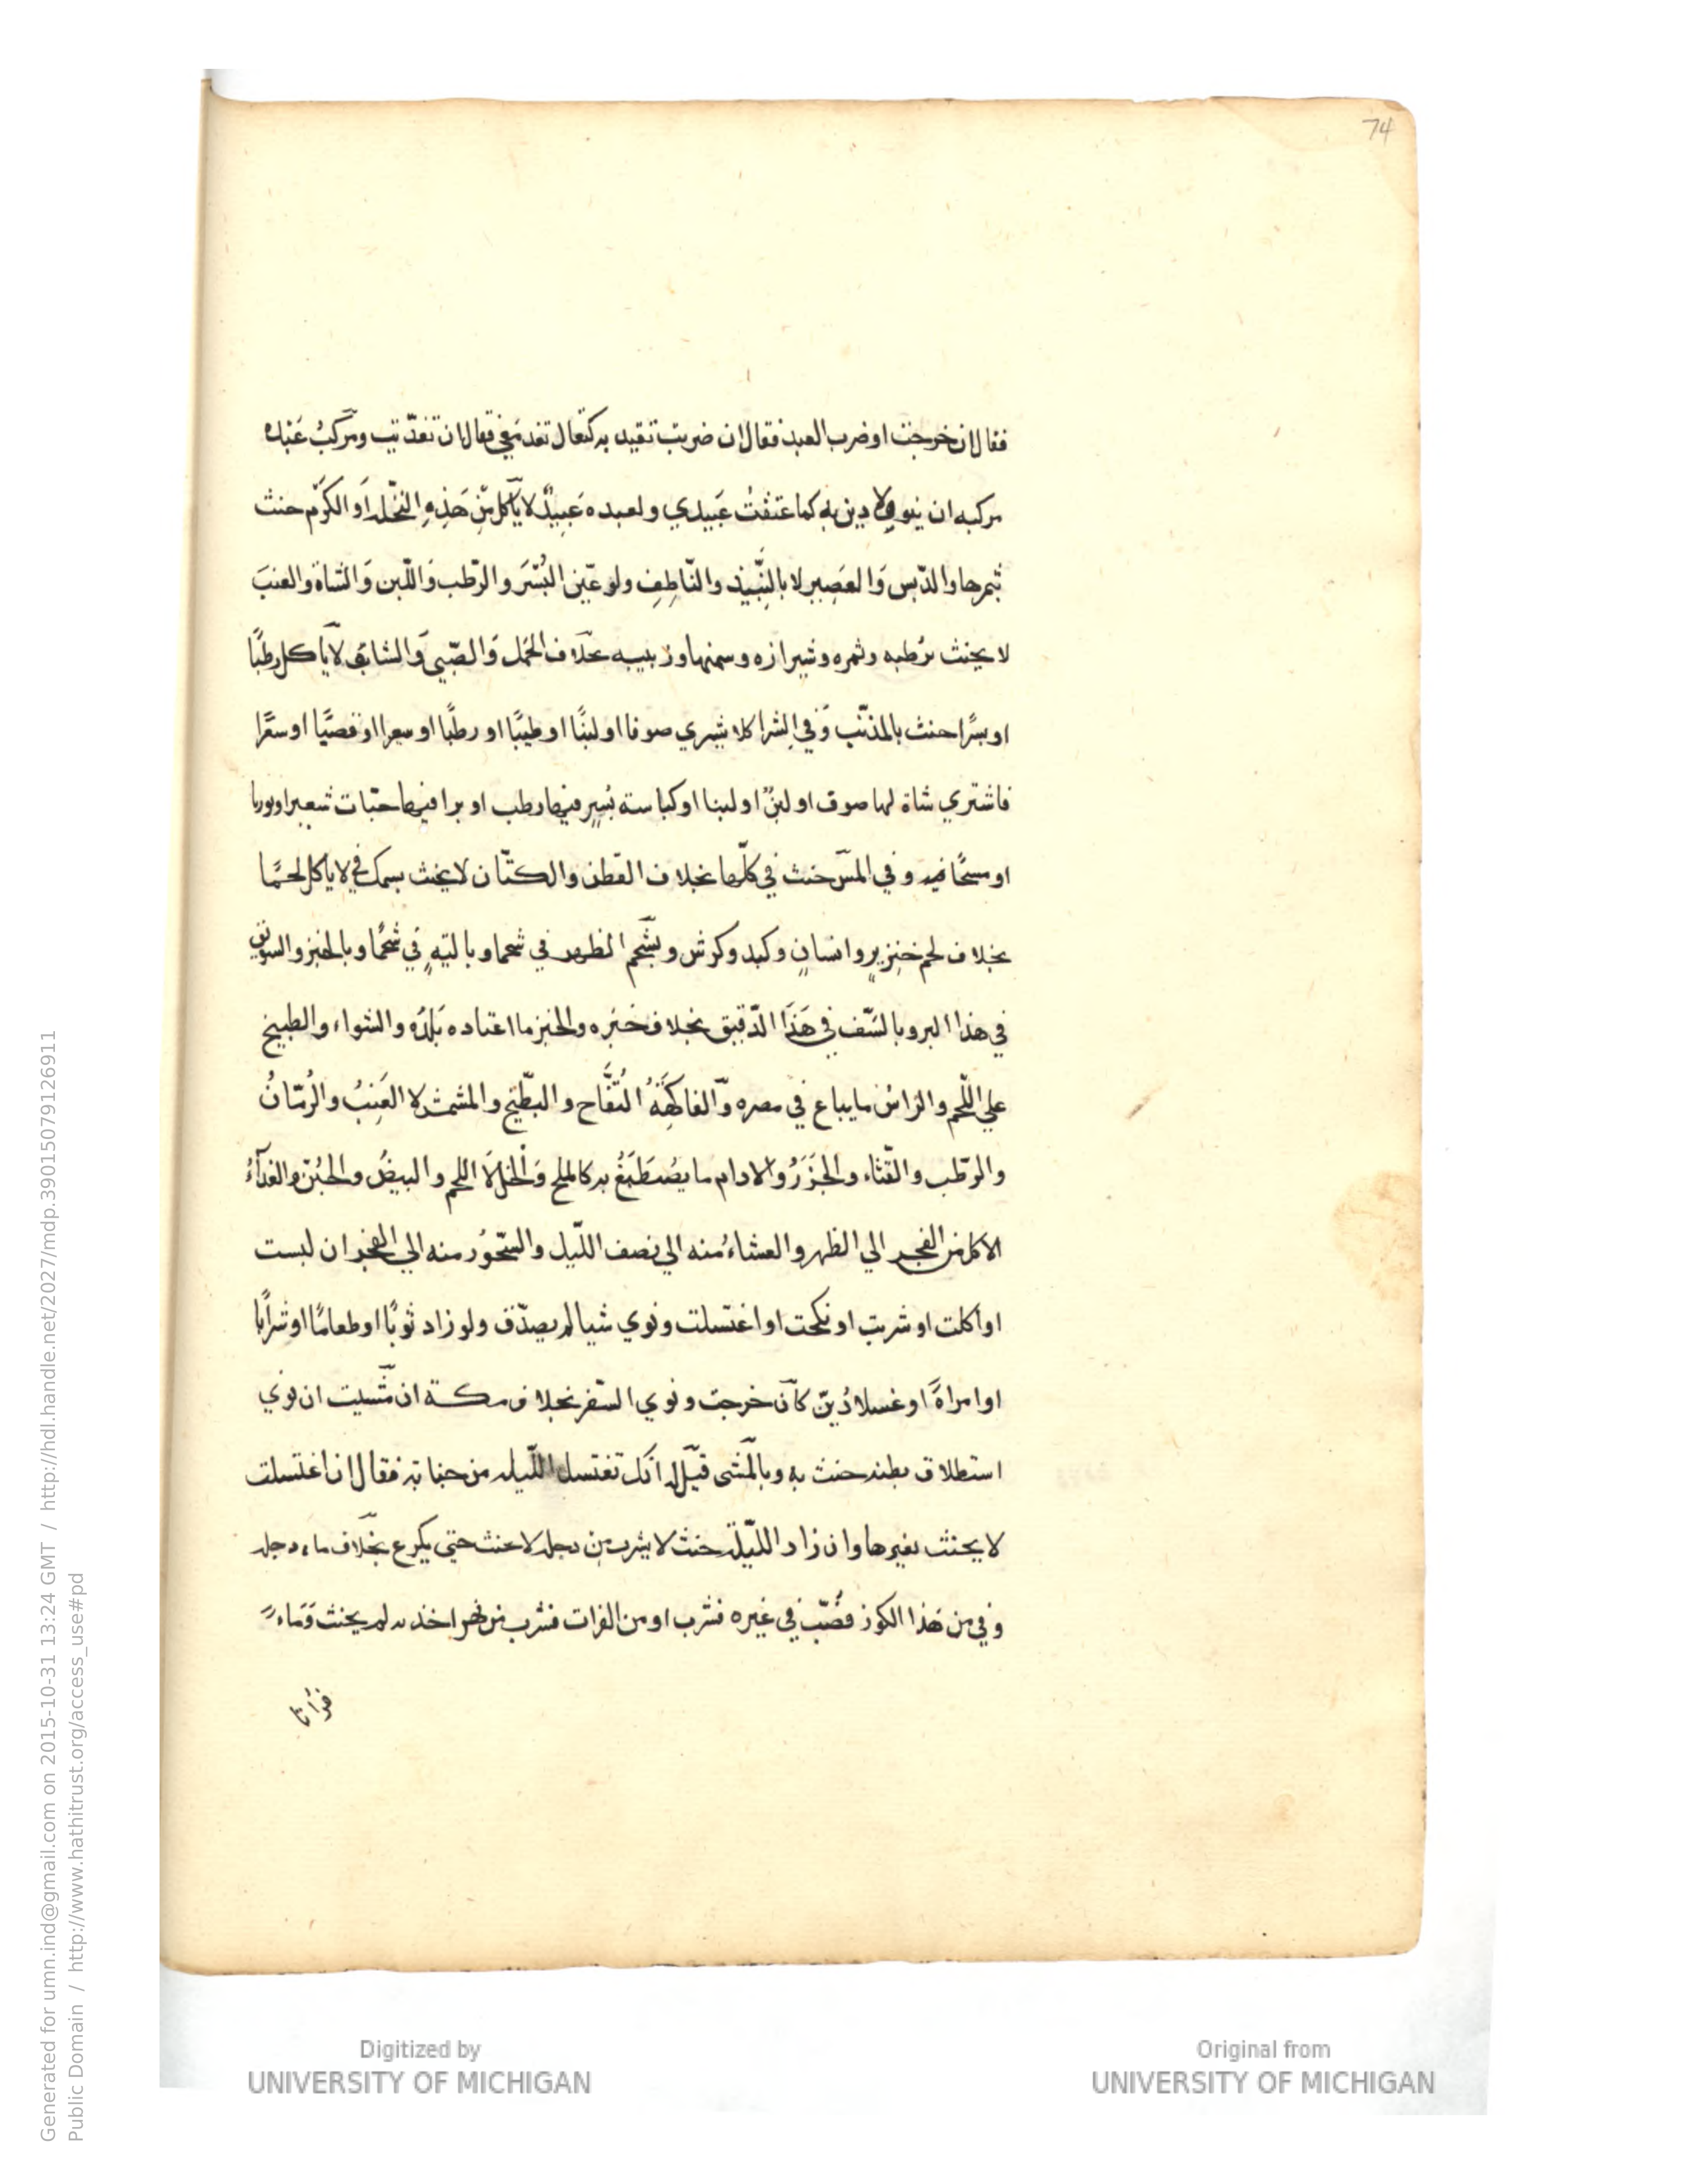 74
فقال ان خرجت او ضرب العبد فقال ان ضربت تقيد به كتعال تغد معي فقال ان تغدّيت ومركبُ عَبْده
مركبه ان ينوي ولا دين به كما عتقتْ عَبيدي ولعبده عَبيدٌ لا يأكل مِن هَذِهِ النّخلة اَو الكرْم حنث
بثمرها والدّبس وَالعَصِير لا بالنَّبيذ والنّاطِف ولو عيّن البُسْرَ والرّطب وَاللّبن وَالشاة والعنبَ
لا يحنث برُطبه وتمره وشيرازه وسمنها وزبيبه بخلاف الحَمل وَالصّبي وَالشاب لا ياكل رطبًا
او بسرًا حنث بالمذنّب وَفي الشرا كلا يشري صوفا او لبنًا او
فاشتري شاة لها صوف او لبنٌ او لبنا او كباسة بُسرٍ فيها رطب او برا فيها حبّات شعير
وفي المسّ حنث في كلّها بخلاف القطن والكتّان لا يحنث بسمك في لا ياكل لحمًا
بخلاف لحم خنزيرٍ وانسانٍ وكبد وكرش وبشحم الظهر في شحما وبالتيهٍ في شحمًا وبالخبز والسويق
في هذا البر وبالسَّف في هَذَا الدّقيق بخلاف خبزه والخبز ما اعتاده بَلدُه والشواء والطبيخ
علي اللّحم والرّاسُ ما يباع في مصره وَّالفاكهَةُ التُفَّاح والبطّيخ والمشمش لا العَنِبُ والرُمّانُ
والرّطب والقّثاء والجَزَرُ والادام ما يصْطَبَغُ به كالملح وَالخل لا اللحم والبيضُ والجُبن والغدآءُ
الاكل من الفجر الي الظهر والعشاءُ منه الي نصف اللّيل والسّحوُر منه الي الفجر ان لبست
او اكلت او شربت او نكحت او اغتسلت ونوي شيا لم يصدّق ولو زاد ثوبًا او طعامًا او شرابًا
او امراةً او غسلا دُيّن كان خرجت ونوي السّفر بخلاف مكة ان مّشيت ان نوي
استطلاق بطنه حنث به وبالمّشى قيّل له انك تغتسل اللّيلة من جنابة فقال ان اغتسلت
لا يحنث بغيرها وان زاد اللّيلة حنث لا يشرب مِن دجله لا يحنث حتي يكرع بخلاف ماء دجله
وفي من هَذا الكوز فصُبّ في غيره فشرب او من الفرات فشرب من نهر اخذ منه لم يحنث وَمَاءً
فراتا
Generated for umn.ind@gmail.com on 2015-10-31 13:24 GMT / http://hdl.handle.net/2027/mdp.39015079126911
Public Domain / http://www.hathitrust.org/access_use#pd
Digitized by
UNIVERSITY OF MICHIGAN
Original from
UNIVERSITY OF MICHIGAN